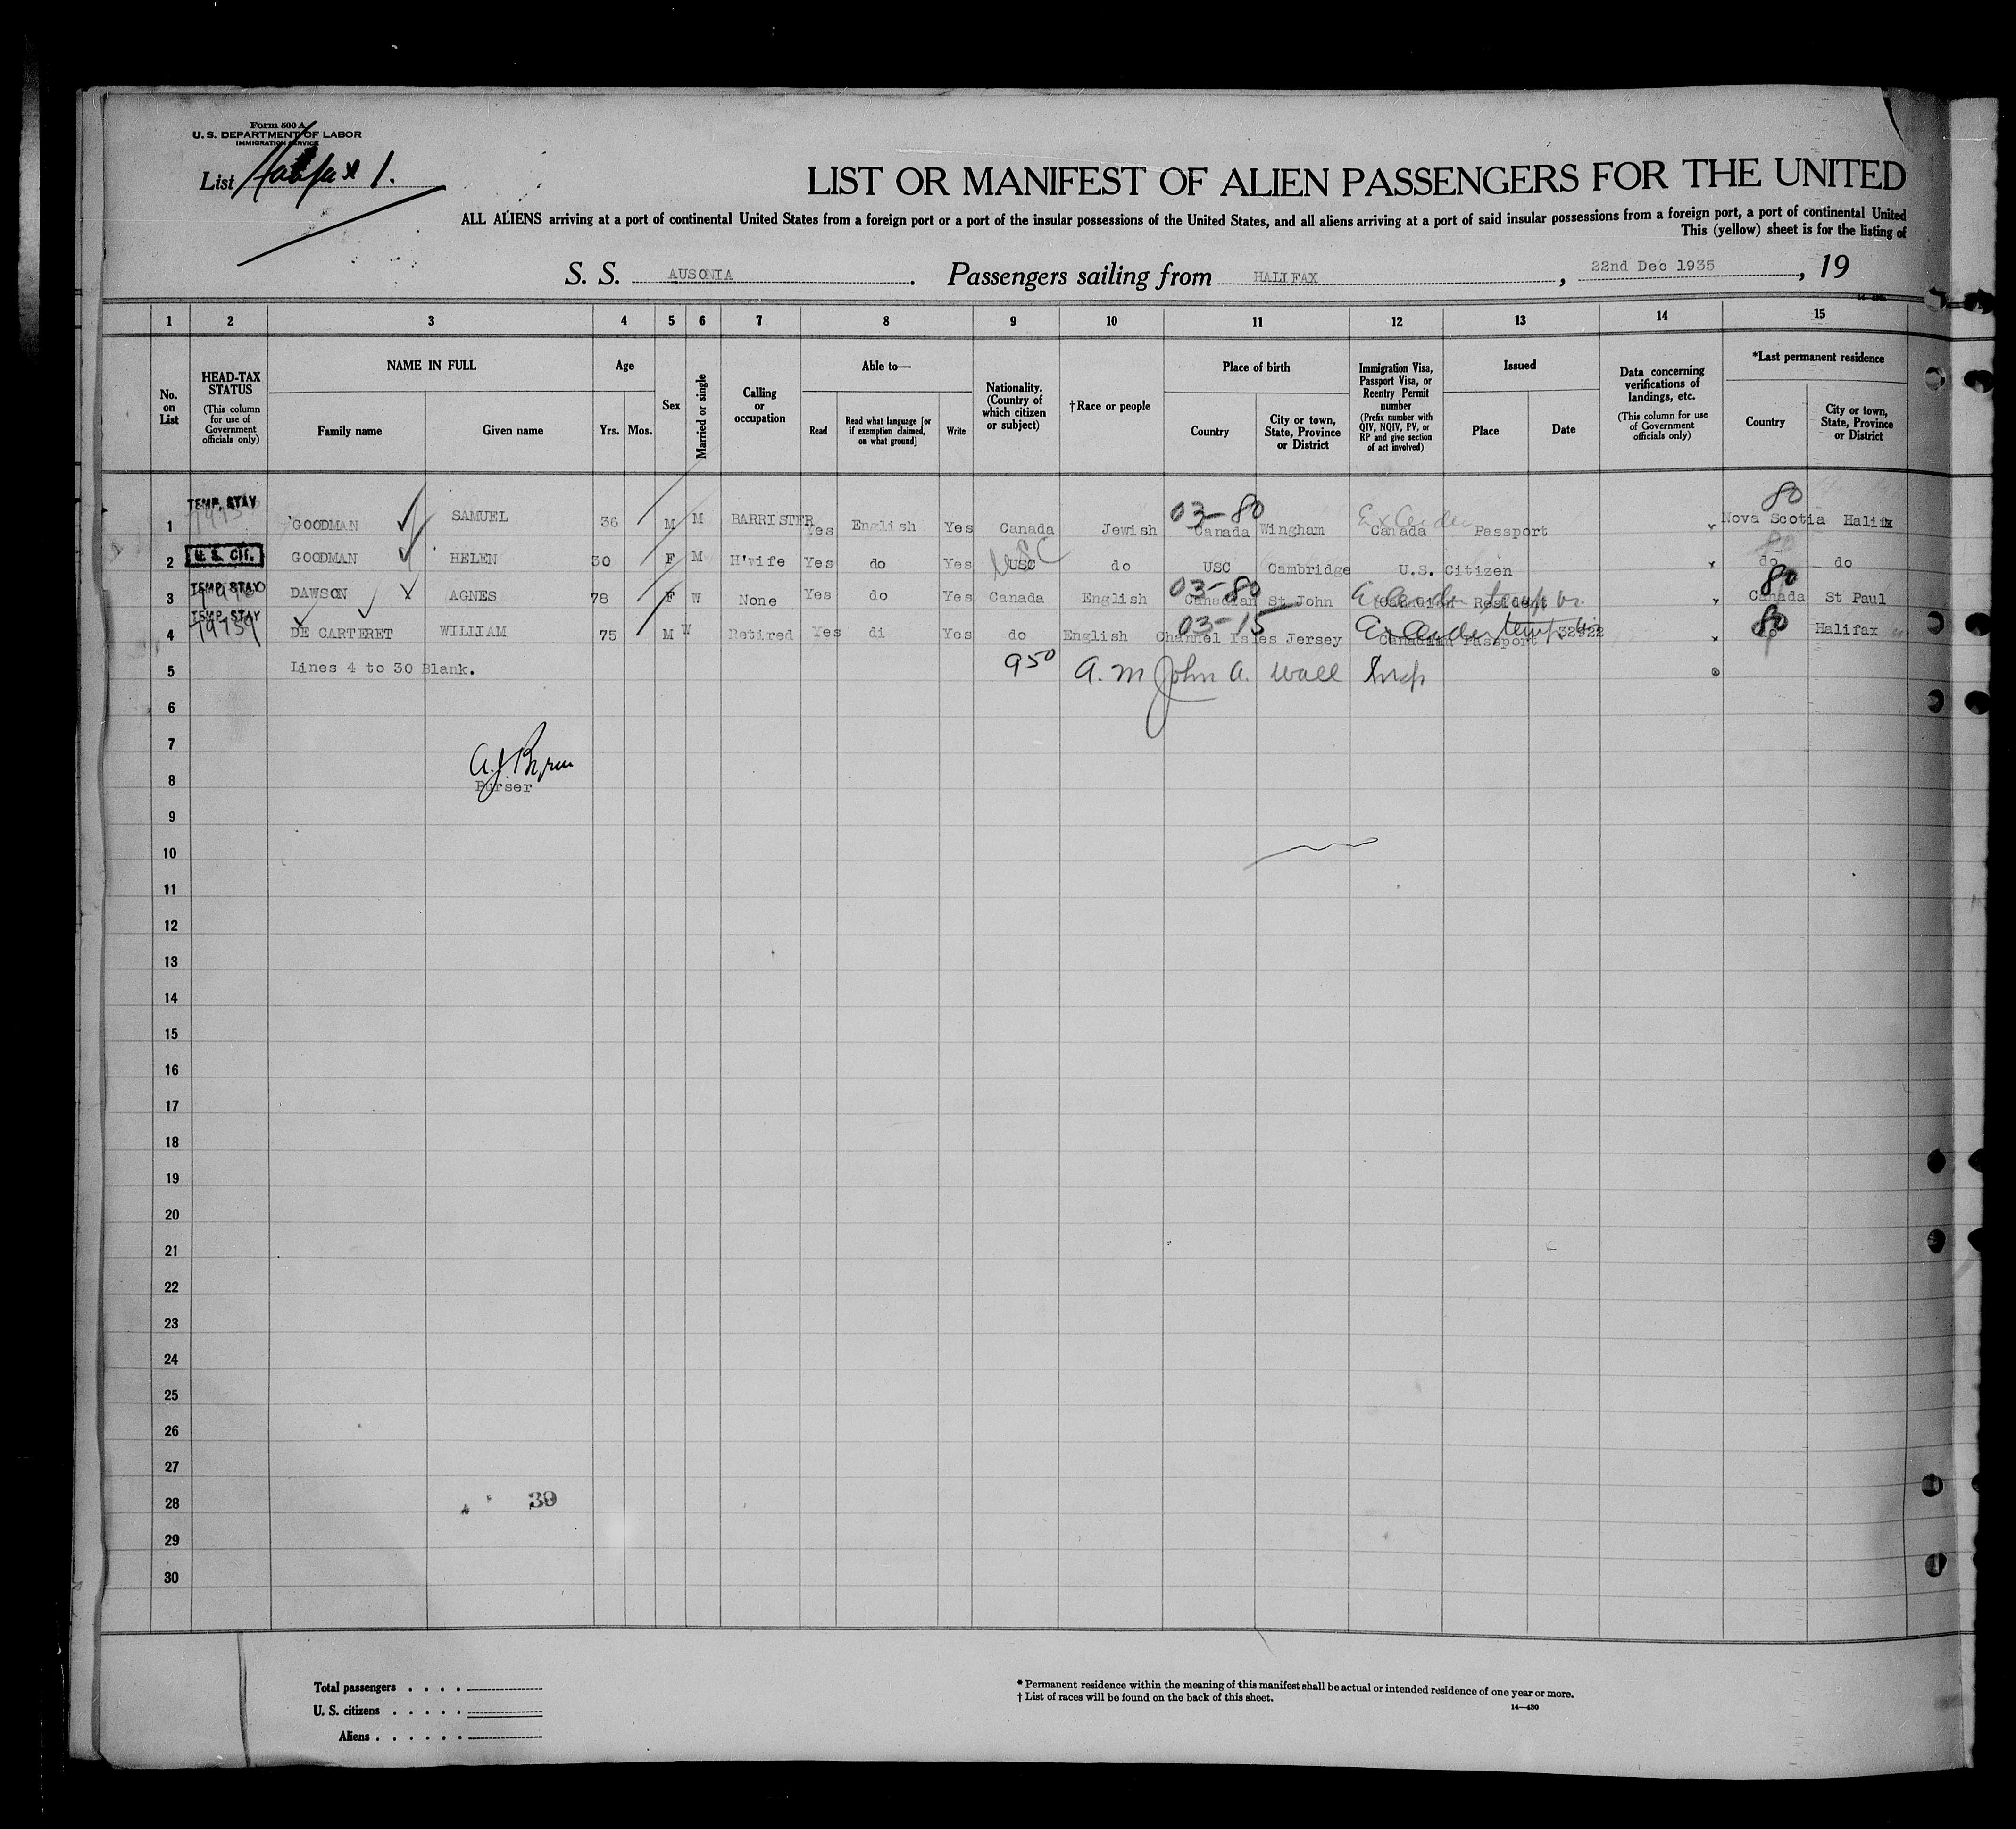 Form 500 A
U. S. DEPARTMENT OF LABOR
IMMIGRATION SERVICE
List Halifax 1.
LIST OR MANIFEST OF ALIEN PASSENGERS FOR THE UNITED
ALL ALIENS arriving at a port of continental United States from a foreign port or a port of the insular possessions of the United States, and all aliens arriving at a port of said insular possessions from a foreign port, a port of continental United
This (yellow) sheet is for the listing of
S. S. AUSONIA. Passengers sailing from HALIFAX, 22nd Dec 1935, 19
1 2 3 4 5 6 7 8 9 10 11 12 13 14 15
No. on List
HEAD-TAX STATUS (This column for use of Government officials only)
NAME IN FULL
Family name Given name
Age
Yrs. Mos.
Sex
Married or single
Calling or occupation
Able to—
Read Read what language [or if exemption claimed, on what ground] Write
Nationality. (Country of which citizen or subject)
†Race or people
Place of birth
Country City or town, State, Province or District
Immigration Visa, Passport Visa, or Reentry Permit number (Prefix number with QIV, NQIV, PV, or RP and give section of act involved)
Issued
Place Date
Data concerning verifications of landings, etc. (This column for use of Government officials only)
*Last permanent residence
Country City or town, State, Province or District
TEMP. STAY 03-80 80
1 GOODMAN SAMUEL 36 M M BARRISTER Yes English Yes Canada Jewish Canada Wingham Canada Passport Nova Scotia Halifx
2 U. S. CIT. GOODMAN HELEN 30 F M H'wife Yes do Yes USC USC do USC Cambridge U.S. Citizen do do
TEMP. STAY 03-80 80
3 DAWSON AGNES 78 F W None Yes do Yes Canada English Canadian St John Canadian Resident Canada St Paul
TEMP. STAY 03-15 80
4 DE CARTERET WILLIAM 75 M W Retired Yes di Yes do English Channel Isles Jersey Canadian Passport 32922 do Halifax
5 Lines 4 to 30 Blank. 950 A.M John A. Wall Insp
6
7
A.J. Byrne
8 Purser
9
10
11
12
13
14
15
16
17
18
19
20
21
22
23
24
25
26
27
28 39
29
30
Total passengers . . . .
U. S. citizens . . . . .
Aliens . . . . . .
* Permanent residence within the meaning of this manifest shall be actual or intended residence of one year or more.
† List of races will be found on the back of this sheet.
14—430